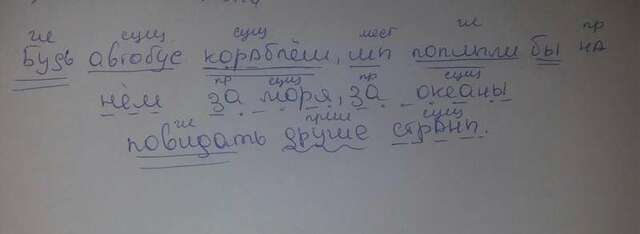 гл сущ сущ мест гл пр
Будь автобус кораблём, мы поплыли бы на
пр сущ пр сущ
нём за моря, за океаны
гл прил сущ
повидать другие страны.